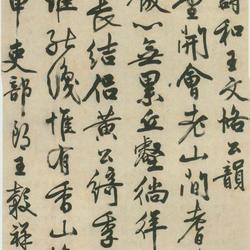 詩和王文恪公韻
開會老山間耆
心無累丘壑徜徉
長結侶黃公綺季
誰能繼惟有香山
申吏部郎王穀祥